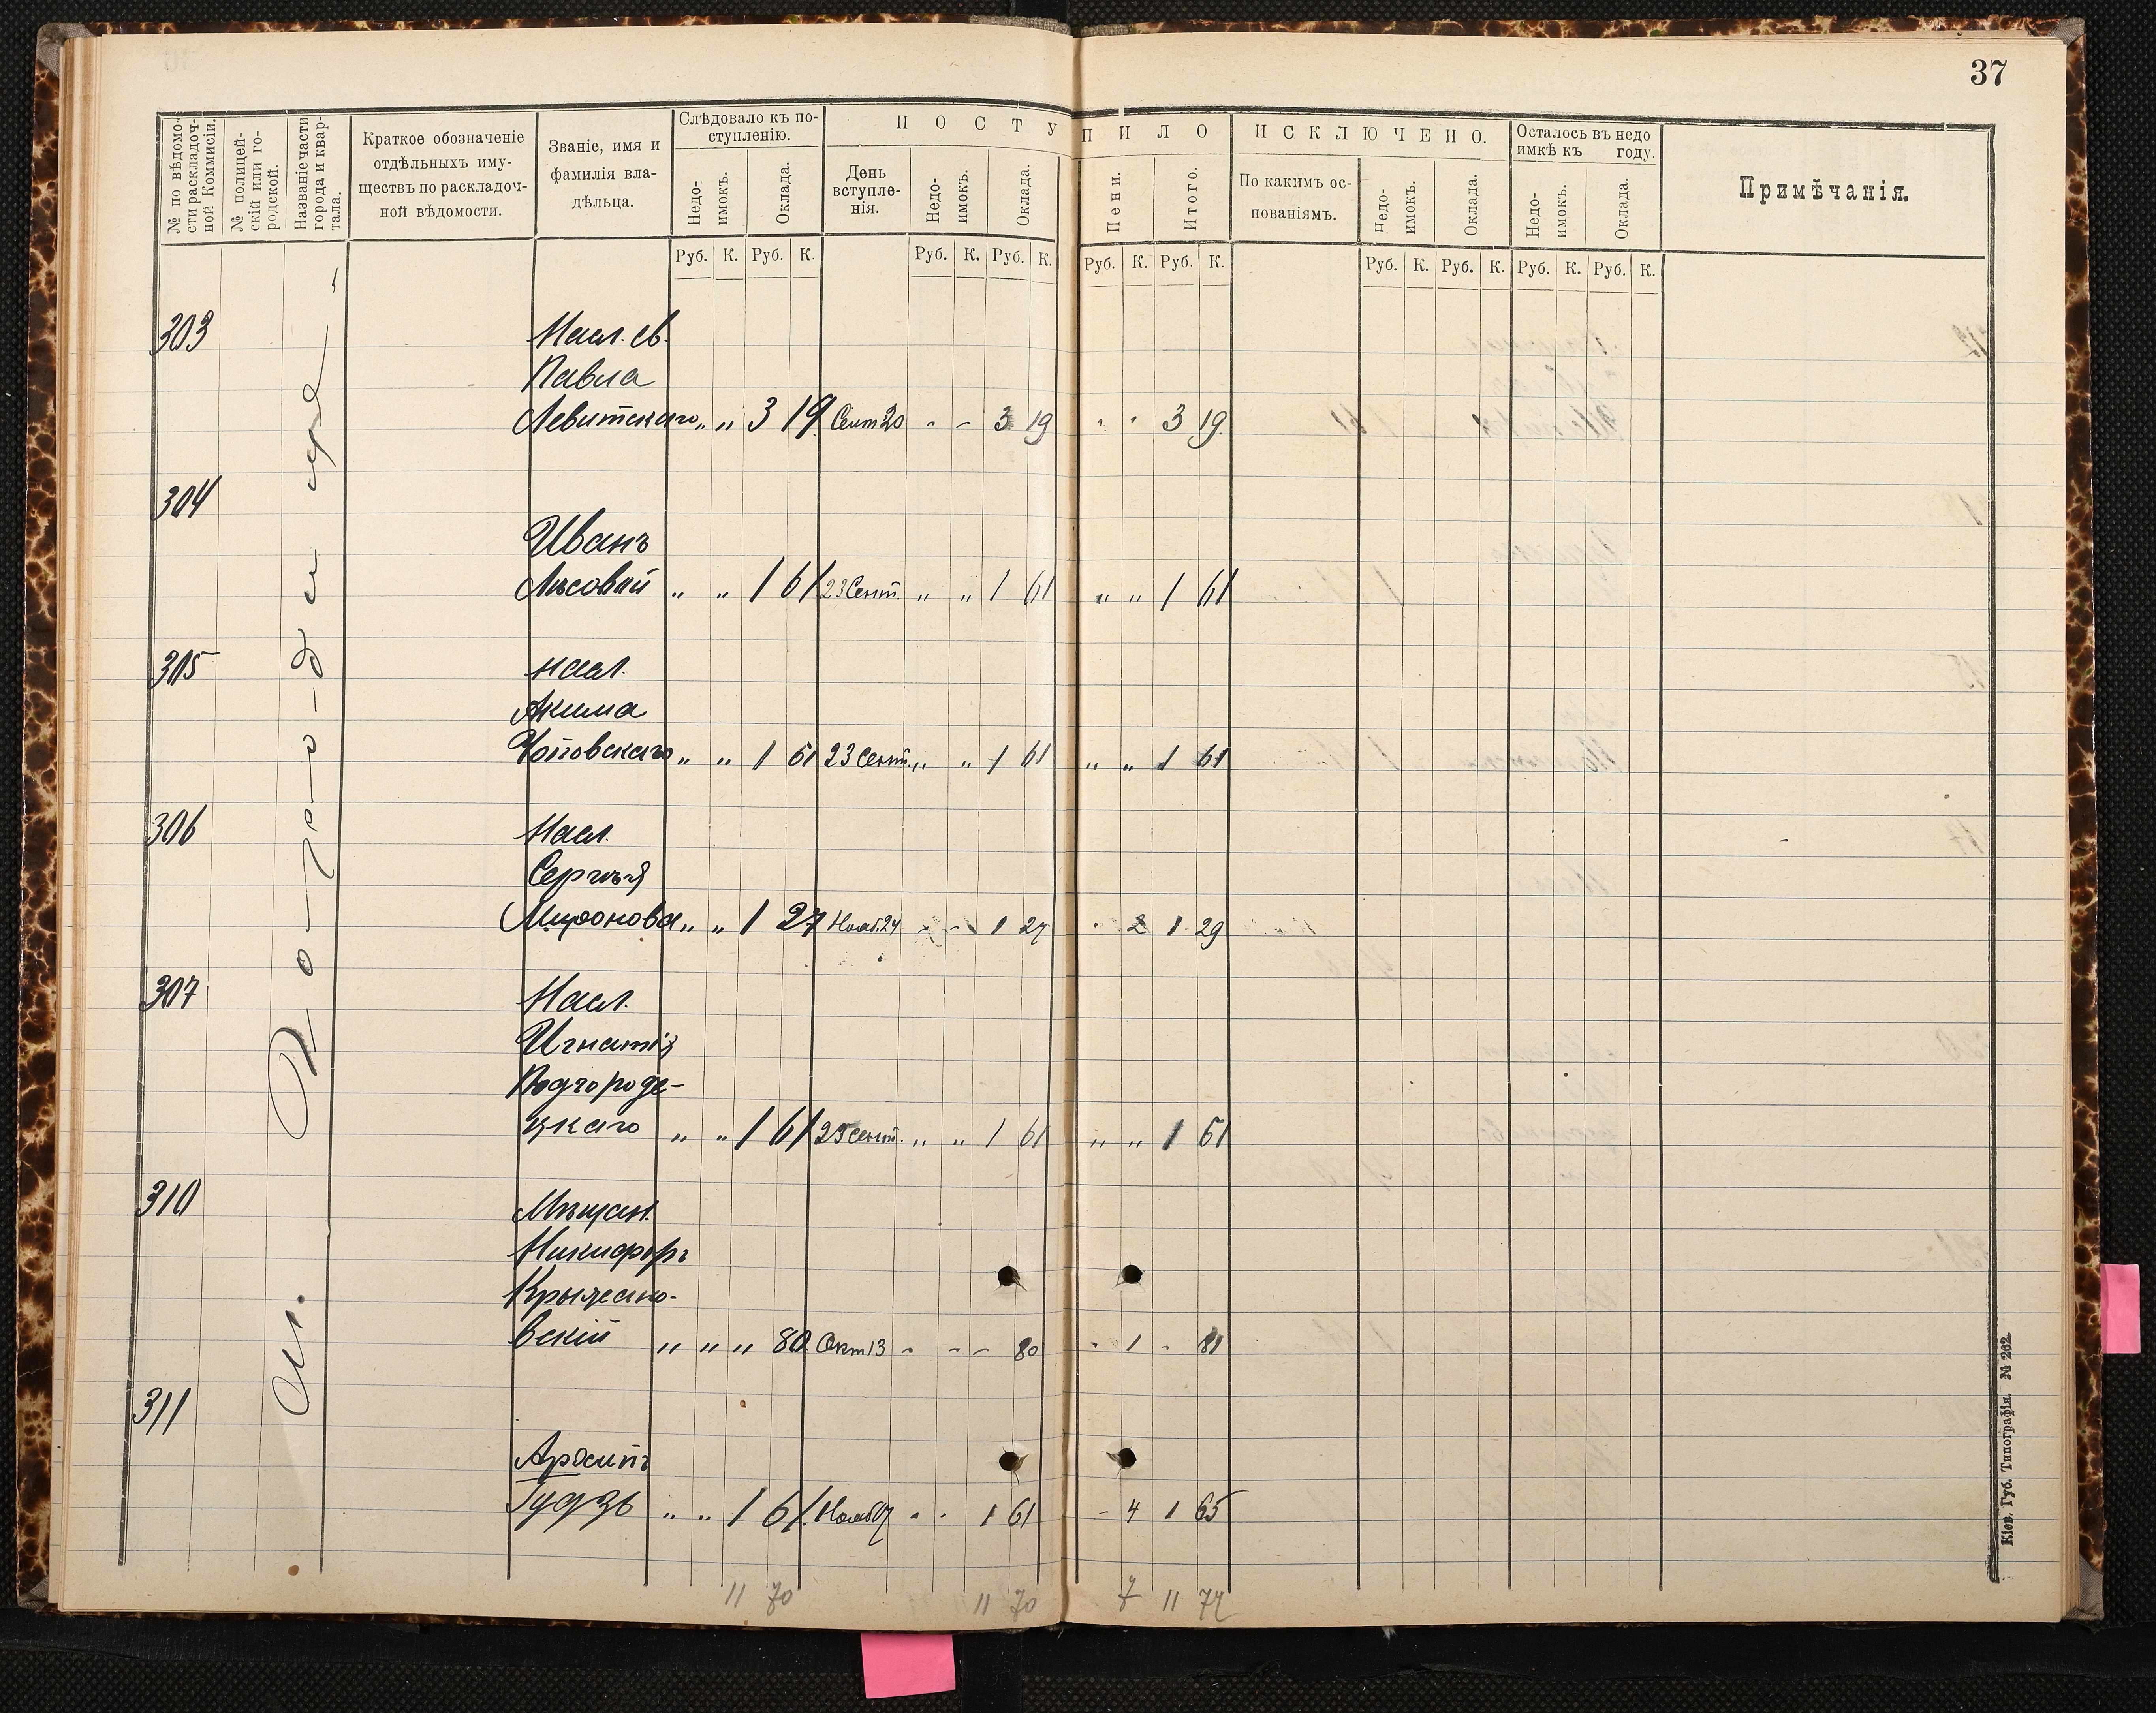 37
№ по вѣдомости раскладочной Коммисіи.
№ полицейскій или городской.
Названіе части города и квартала.
Краткое обозначеніе отдѣльныхъ имуществъ по раскладочной вѣдомости.
Званіе, имя и фамилія владѣльца.
Слѣдовало къ поступленію.
Недоимокъ.
Оклада.
ПОСТУПИЛО
День вступленія.
Недоимокъ.
Оклада.
Пени.
Итого.
ИСКЛЮЧЕНО.
По какимъ основаніямъ.
Недоимокъ.
Оклада.
Осталось въ недоимкѣ къ году.
Недоимокъ.
Оклада.
Примѣчанія.
Руб. К. Руб. К. Руб. К. Руб. К. Руб. К. Руб. К. Руб. К. Руб. К. Руб. К. Руб. К.
303 Насл. св.
Павла
Левитскаго „ „ 3 19 Сент 20 - - 3 19 - - 3 19
304
Иванъ
Лѣсовый „ „ 1 61 23 Сент. „ „ 1 61 „ „ 1 61
305 насл.
Акима
„ „ 1 61 23 Сент. „ „ 1 61 „ „ 1 61
306 Насл.
Сергѣя
Миронова „ „ 1 27 Нояб. 24 - - 1 27 - 2 1 29
307 Насл.
Игнатія
Подгороде-
цкаго „ „ 1 61 25 сент. „ „ 1 61 „ „ 1 61
310 Мѣщан.
Никифоръ
вскій „ „ „ 80 Окт 13 - - - 80 - 1 - 81
311
Гудзь „ „ 1 61 Нояб - - 1 61 - 4 1 65
11 70 11 70 7 11 77
Кіев. Губ. Типографія. № 262